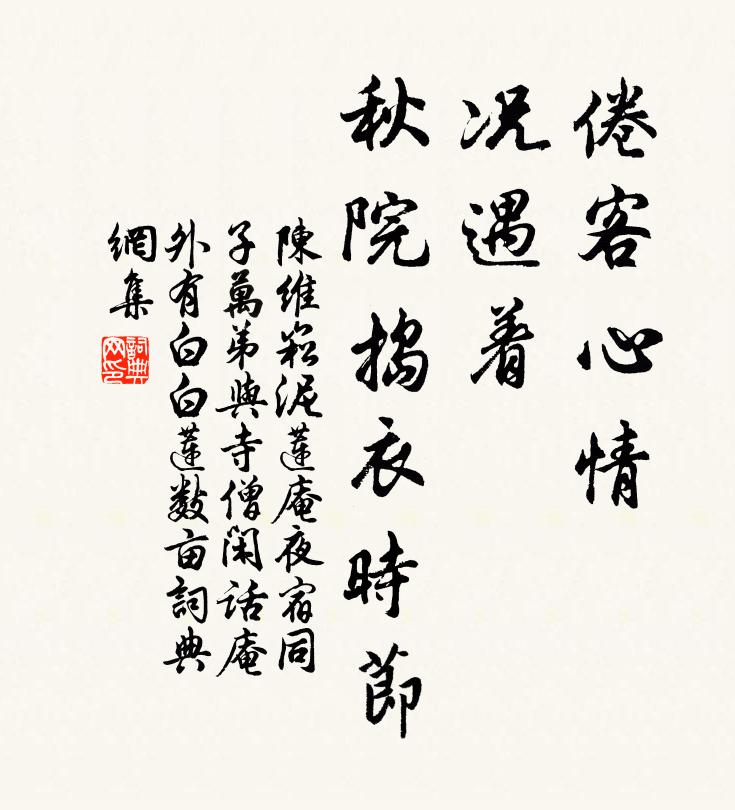 倦客心情
况遇着
秋院捣衣時節
陳維崧泥蓮庵夜宿同
子萬弟與寺僧閑話庵
外有白白蓮数亩詞典
網集
詞典网印